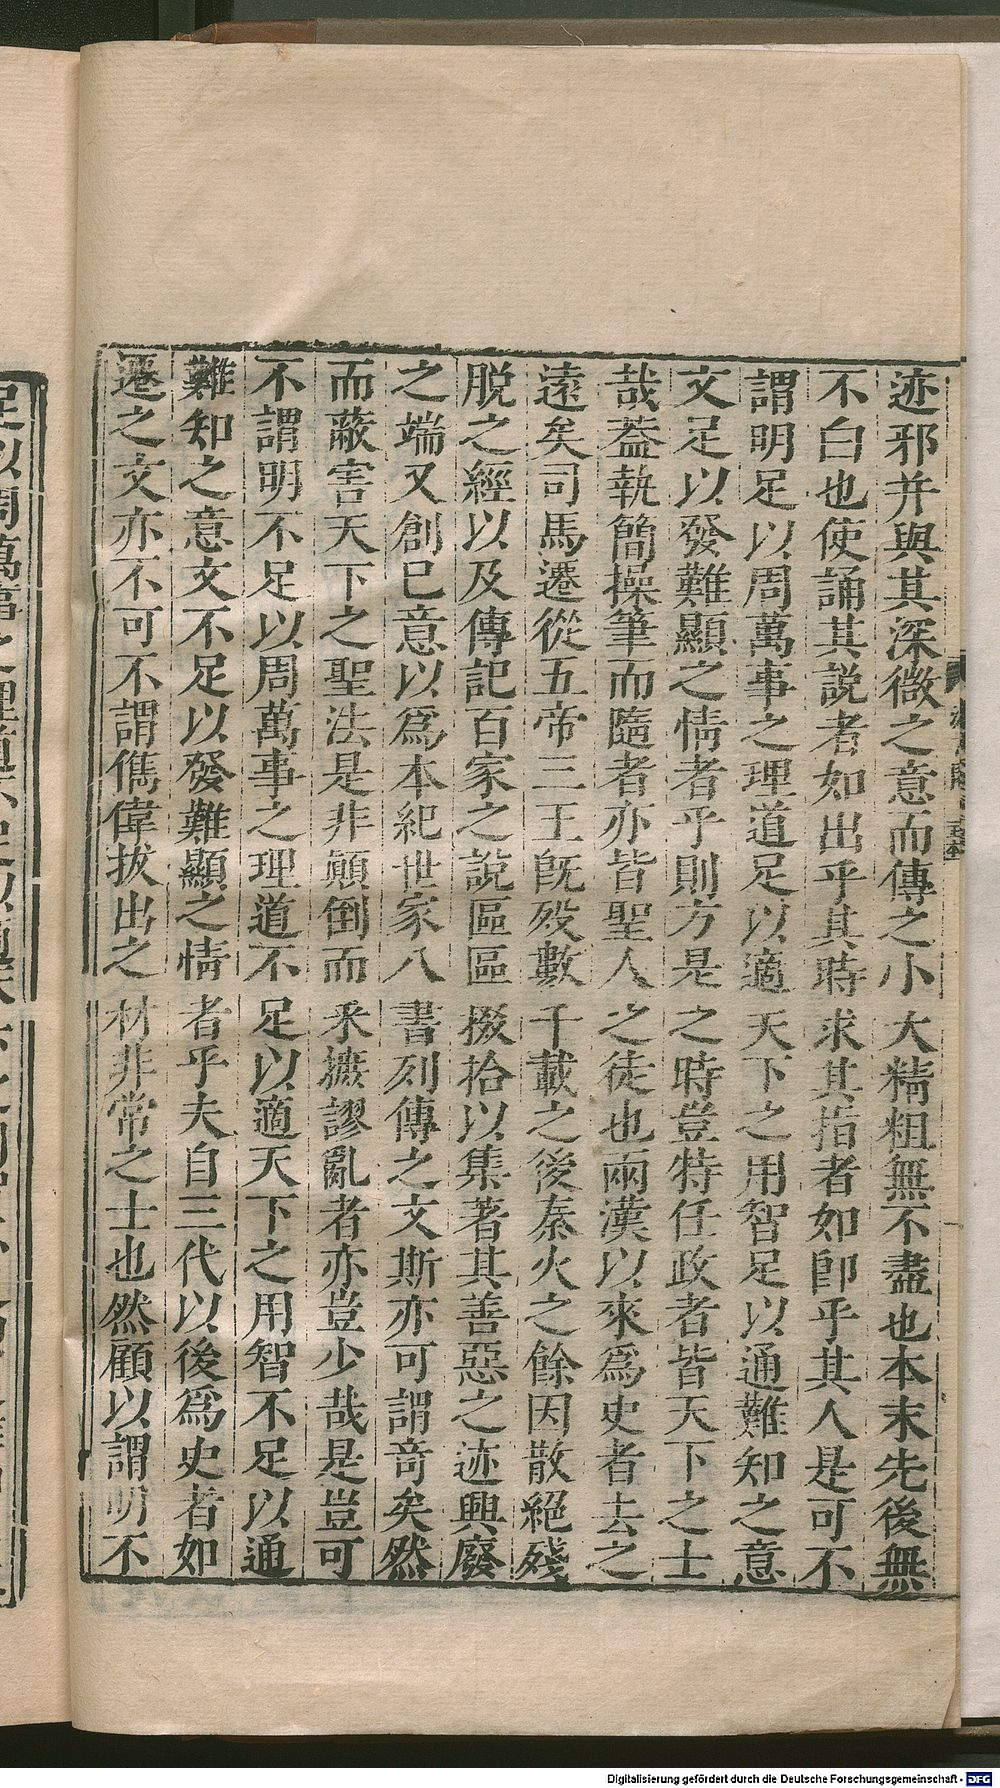 迹邪并與其深微之意而傳之小大精粗無不盡也本末先後無
不白也使誦其說者如出乎其時求其指者如卽乎其人是可不
謂明足以周萬事之理道足以適天下之用智足以通難知之意
文足以發難顯之情者乎則方是之時豈特任政者皆天下之士
哉葢執簡操筆而隨者亦皆聖人之徒也兩漢以來爲史者去之
遠矣司馬遷從五帝三王旣歿數千載之後秦火之餘因散絕殘
脫之經以及傳記百家之說區區掇拾以集著其善惡之迹興廢
之端又創己意以爲本紀世家八書列傳之文斯亦可謂奇矣然
而蔽害天下之聖法是非顛倒而采摭謬亂者亦豈少哉是豈可
不謂明不足以周萬事之理道不足以適天下之用智不足以通
難知之意文不足以發難顯之情者乎夫自三代以後爲史者如
遷之文亦不可不謂儁偉拔出之材非常之士也然顧以謂明不
Digitalisierung gefördert durch die Deutsche Forschungsgemeinschaft - DFG